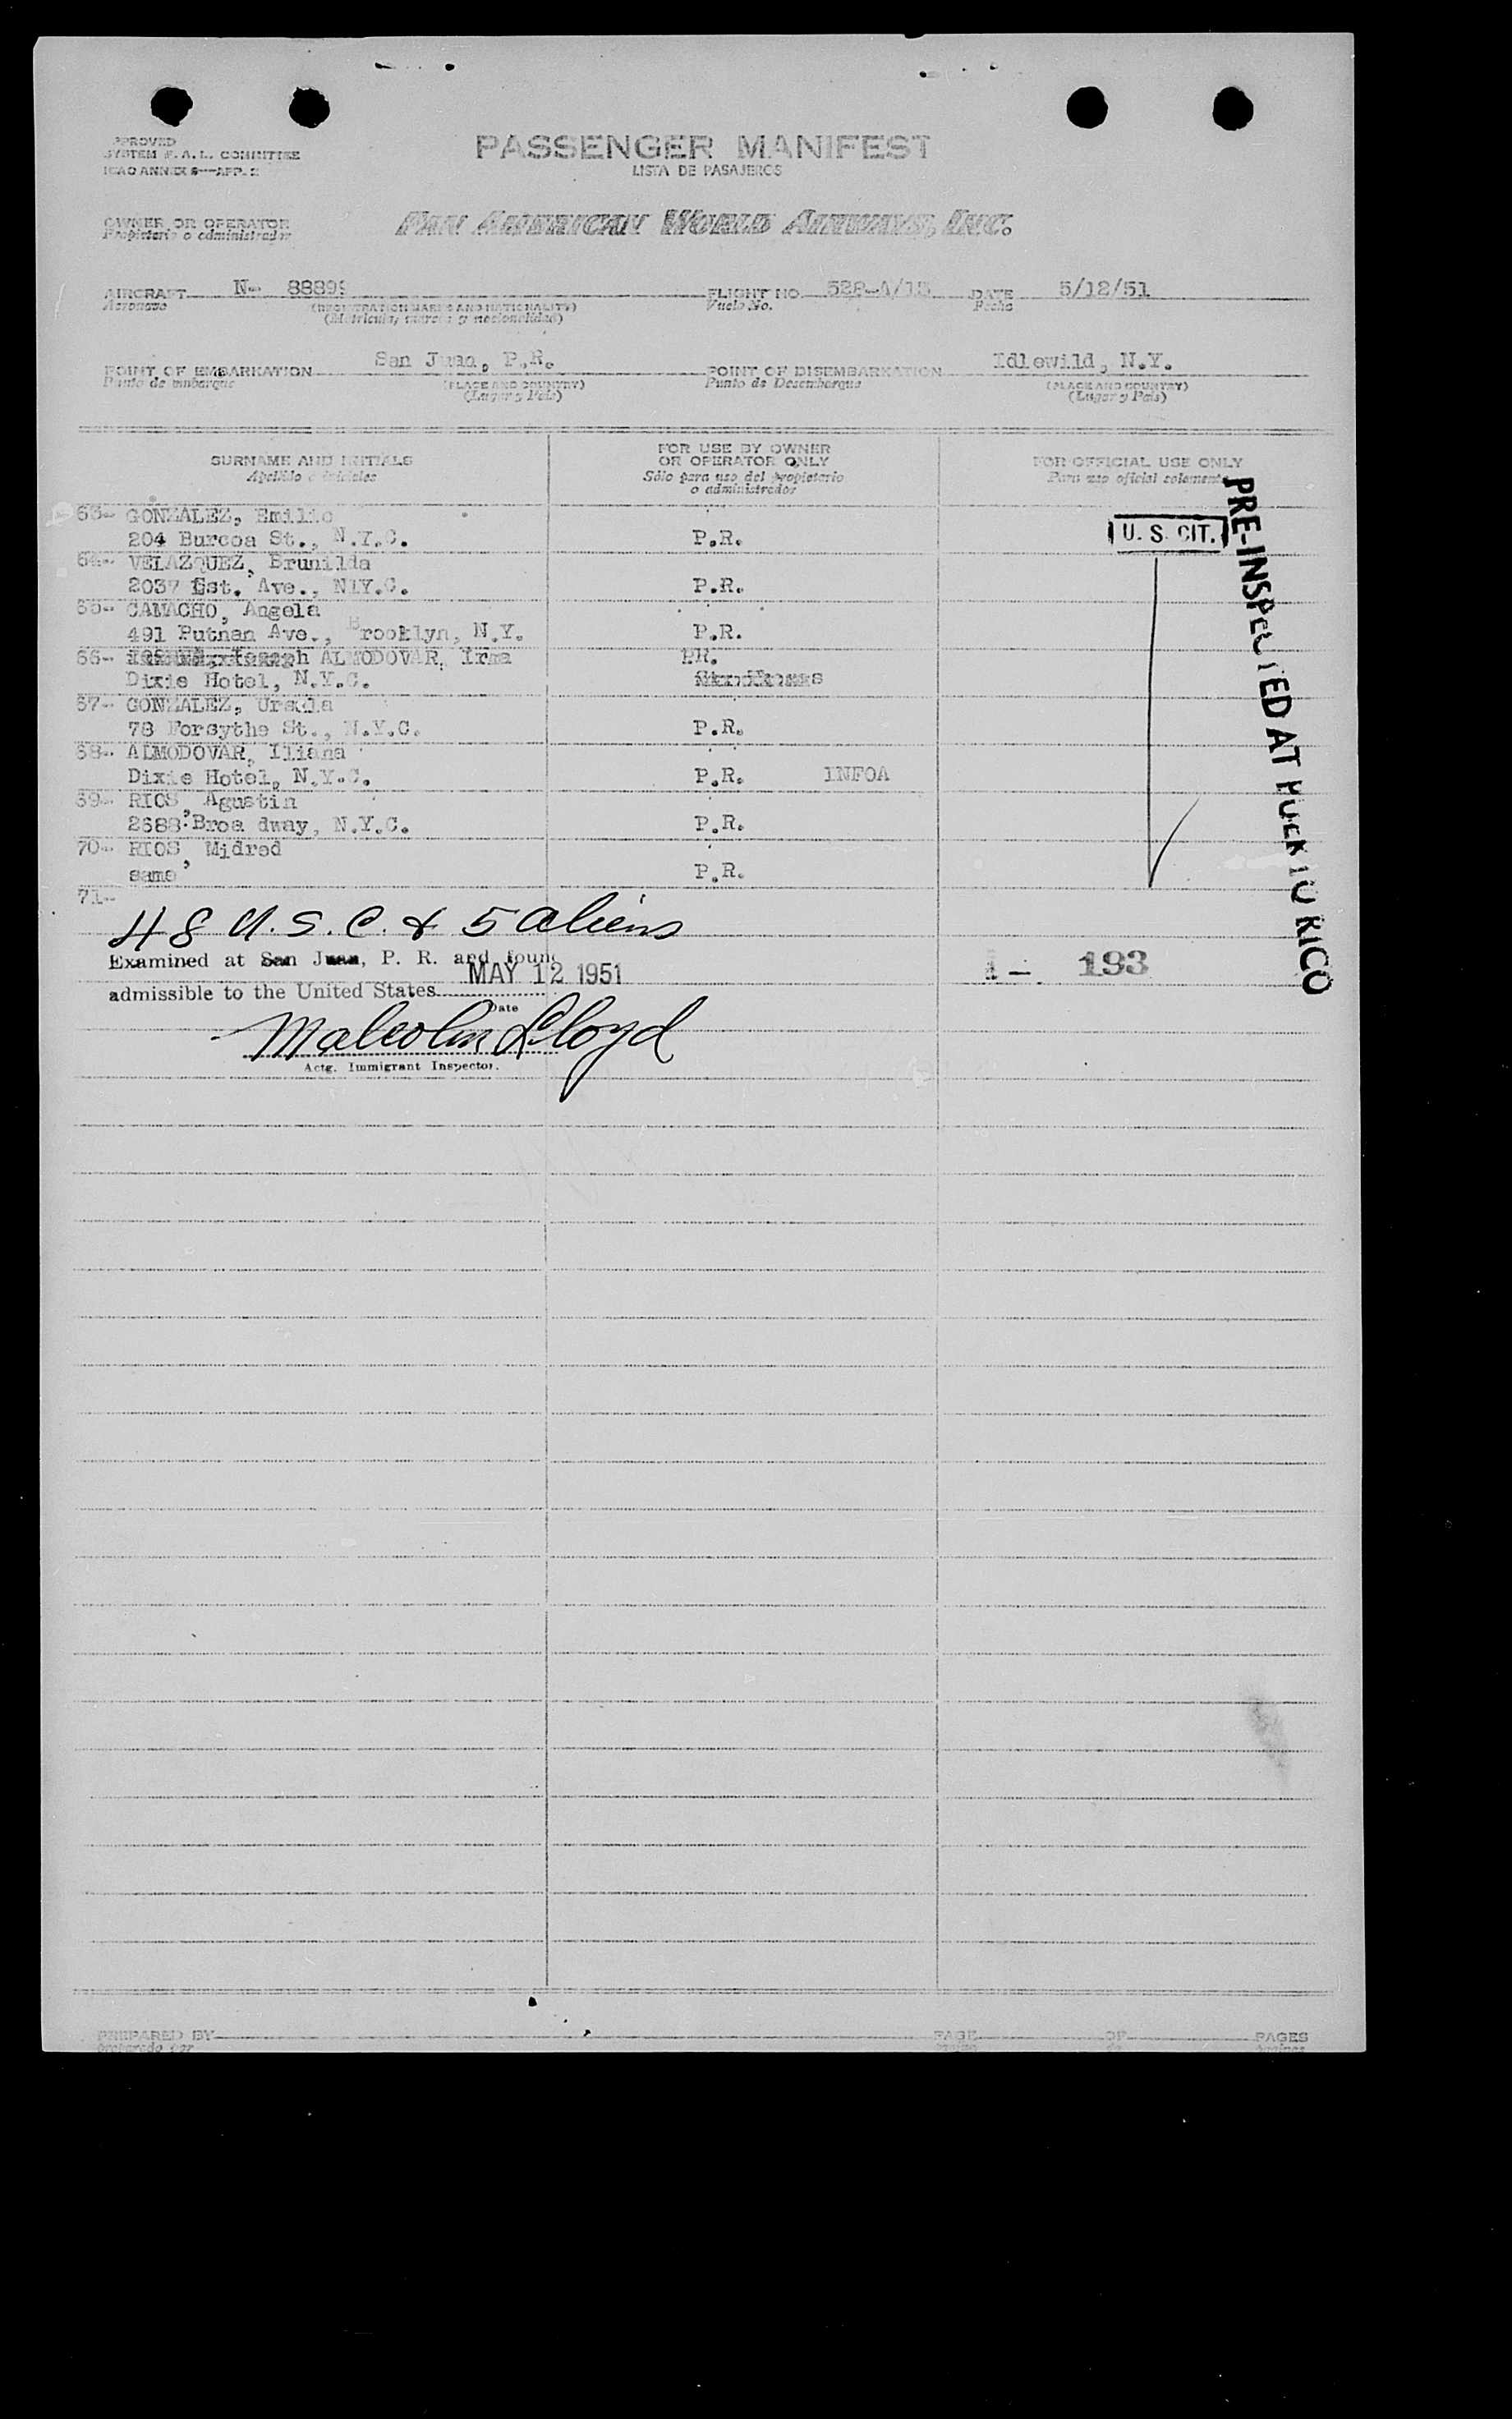 APPROVED
SYSTEM F.A.L. COMMITTEE
ICAO ANNEX 9—APP. 2
PASSENGER MANIFEST
LISTA DE PASAJEROS
OWNER OR OPERATOR
Propietario o administrador
PAN AMERICAN WORLD AIRWAYS, INC.
AIRCRAFT N- 88899 FLIGHT NO. DATE 5/12/51
Aeronave (REGISTRATION MARKS AND NATIONALITY) Vuelo No. Fecha
(Matricula, marcas y nacionalidad)
POINT OF EMBARKATION San Juan, P.R. POINT OF DISEMBARKATION Idlewild, N.Y.
Punto de embarque (PLACE AND COUNTRY) Punto de Desembarque (PLACE AND COUNTRY)
(Lugar y País) (Lugar y País)
SURNAME AND INITIALS
Apellido e iniciales
FOR USE BY OWNER
OR OPERATOR ONLY
Sólo para uso del propietario
o administrador
FOR OFFICIAL USE ONLY
Para uso oficial solamente
63- GONZALEZ, Emilio
204 Burcoa St., N.Y.C. P.R.
64- VELAZQUEZ, Brunilda
2037 Est. Ave., N1Y.C. P.R.
65- CAMACHO, Angela
491 Putnan Ave., Brooklyn, N.Y. P.R.
66- ALMODOVAR, Irma PR.
Dixie Hotel, N.Y.C.
67- GONZALEZ, Ursula
78 Forsythe St., N.Y.C. P.R.
68- ALMODOVAR, Iliana
Dixie Hotel, N.Y.C. P.R. 1NFOA
69- RIOS, Agustin
2688 Broa dway, N.Y.C. P.R.
70- RIOS, Midred
same P.R.
71-
U. S. CIT.
PRE-INSPECTED AT PUERTO RICO
48 U.S.C. & 5 aliens
Examined at San Juan, P. R. and found
admissible to the United States MAY 12 1951
Date
Malcolm Lloyd
Actg. Immigrant Inspector.
1- 193
PREPARED BY PAGE OF PAGES
preparado por